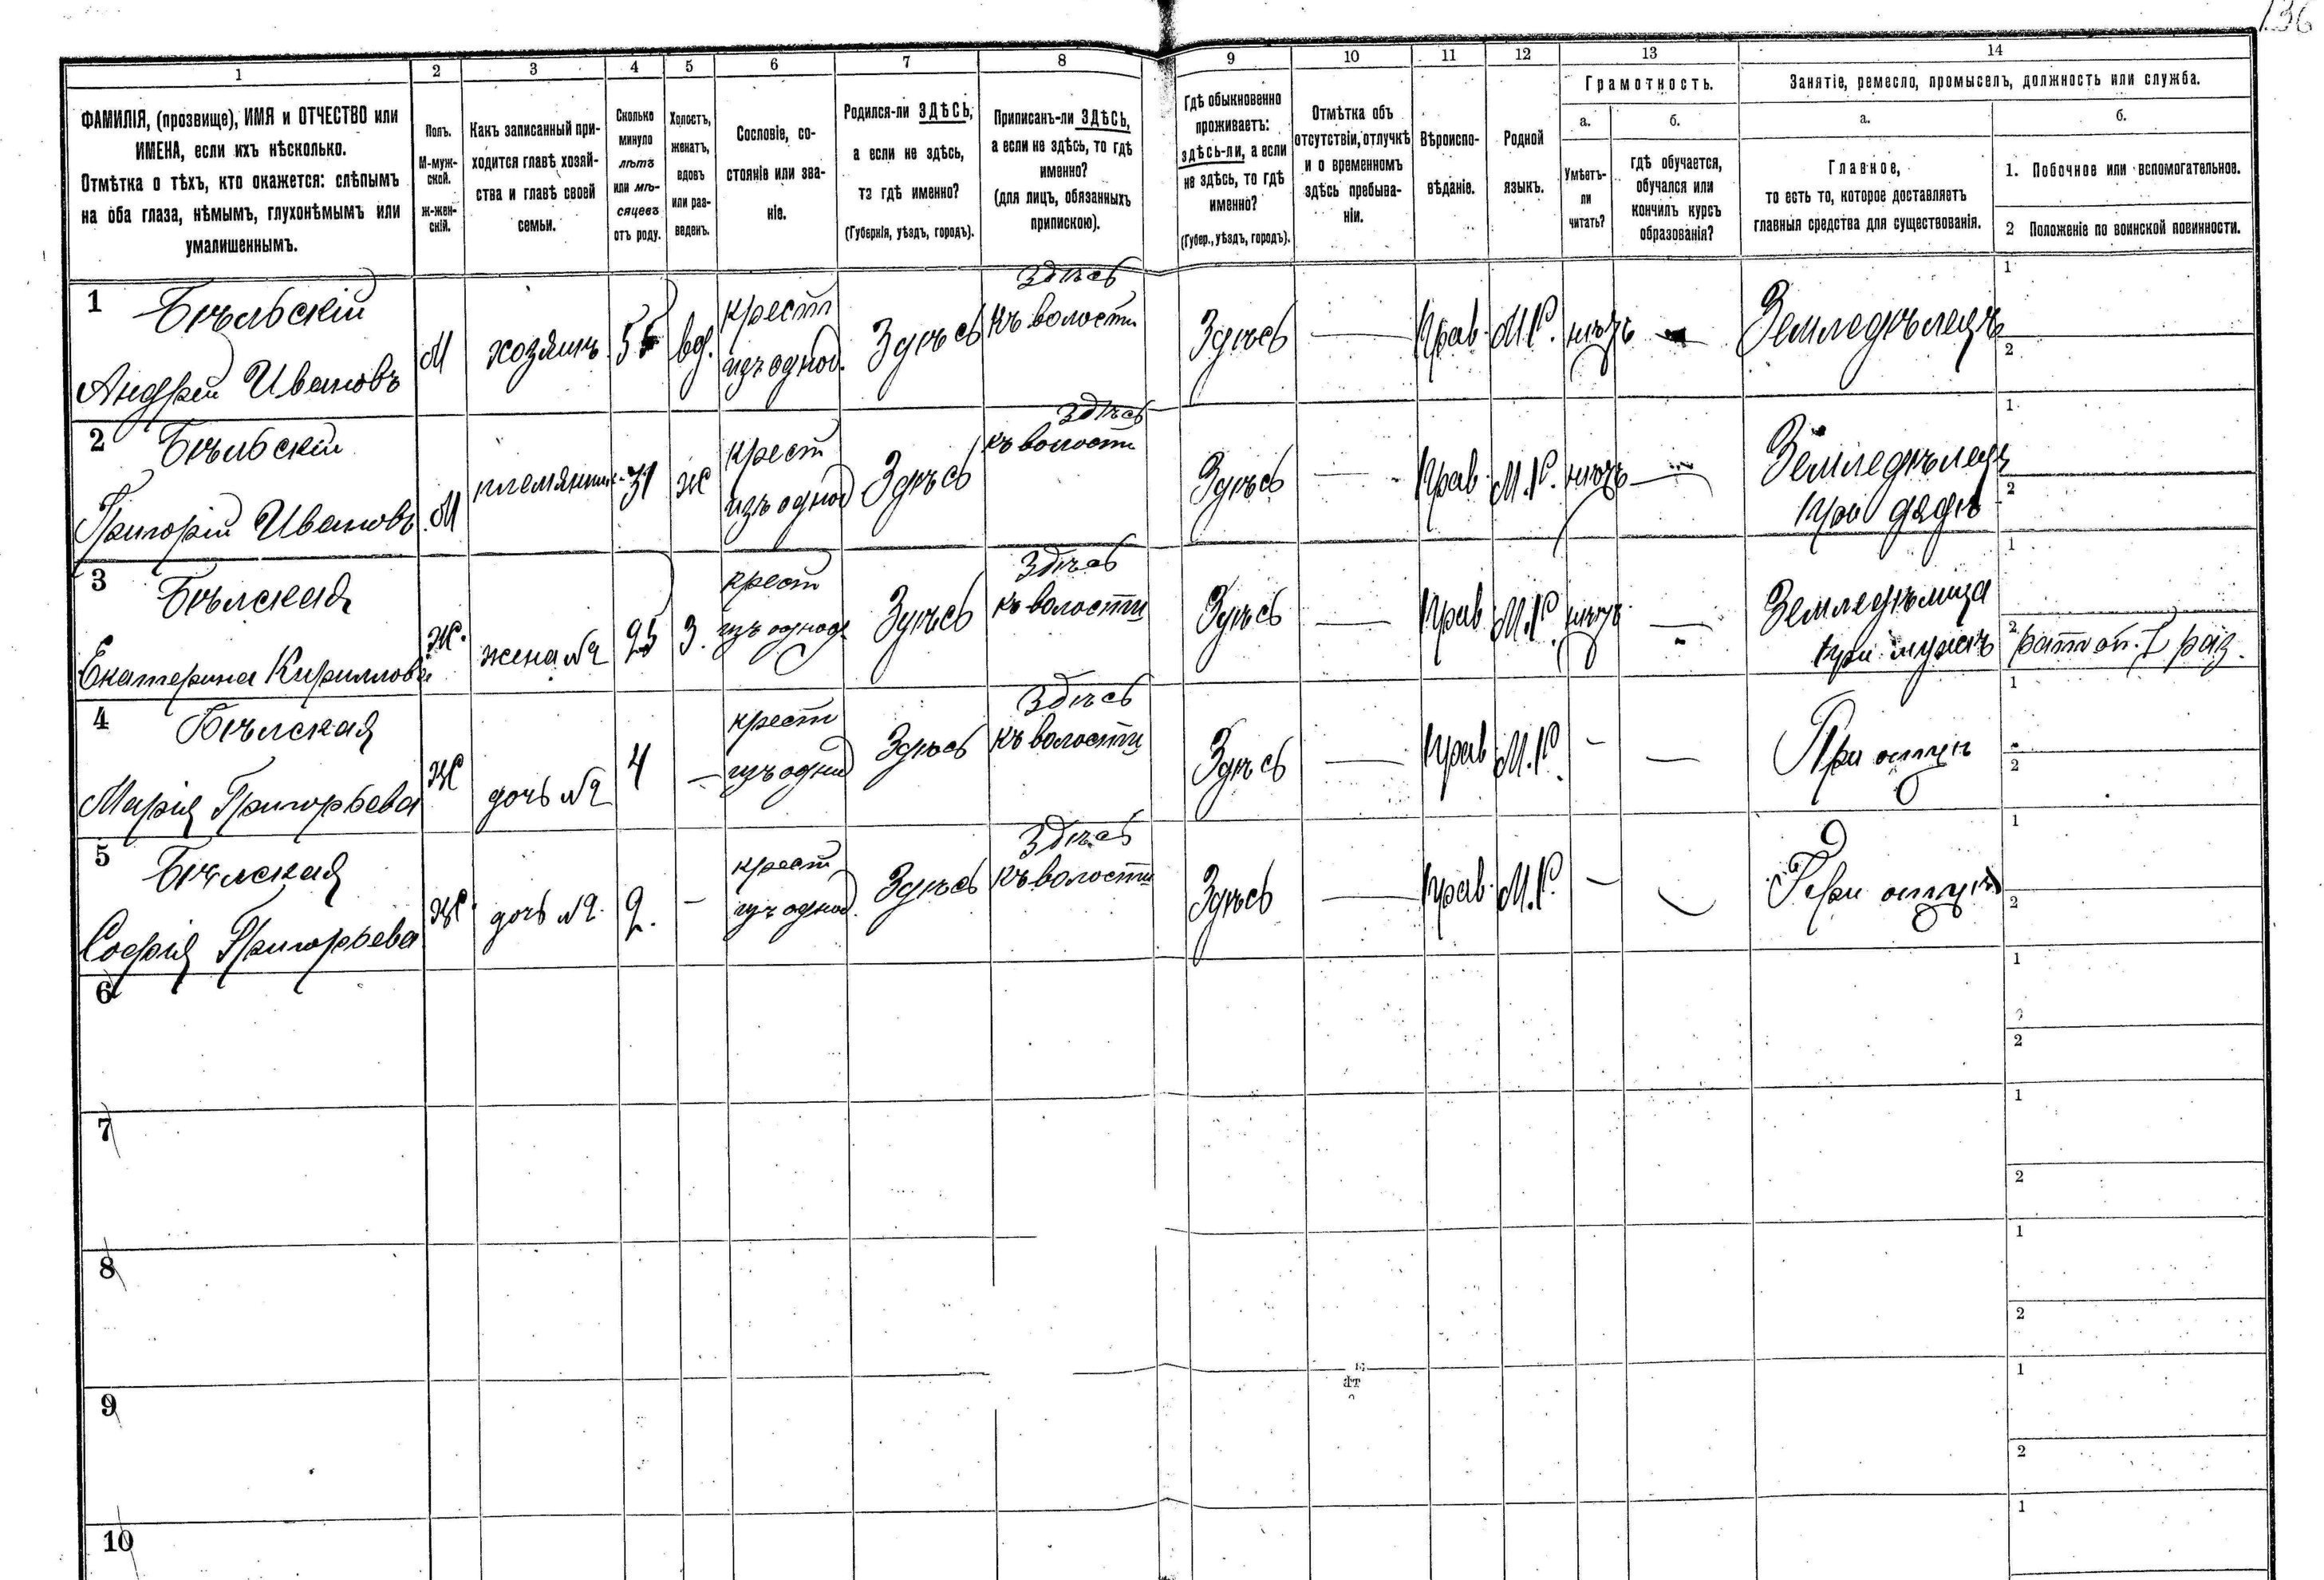 136
1 2 3 4 5 6 7 8 9 10 11 12 13 14
ФАМИЛІЯ, (прозвище), ИМЯ и ОТЧЕСТВО или
ИМЕНА, если ихъ нѣсколько.
Отмѣтка о тѣхъ, кто окажется: слѣпымъ
на оба глаза, нѣмымъ, глухонѣмымъ или
умалишеннымъ.
Полъ.
М-муж-
ской.
ж-жен-
скій.
Какъ записанный при-
ходится главѣ хозяй-
ства и главѣ своей
семьи.
Сколько
минуло
лѣтъ
или мѣ-
сяцевъ
отъ роду.
Холостъ,
женатъ,
вдовъ
или раз-
веденъ.
Сословіе, со-
стояніе или зва-
ніе.
Родился-ли ЗДѢСЬ,
а если не здѣсь,
то гдѣ именно?
(Губернія, уѣздъ, городъ).
Приписанъ-ли ЗДѢСЬ,
а если не здѣсь, то гдѣ
именно?
(для лицъ, обязанныхъ
припискою).
Гдѣ обыкновенно
проживаетъ:
здѣсь-ли, а если
не здѣсь, то гдѣ
именно?
(Губер., уѣздъ, городъ).
Отмѣтка объ
отсутствіи, отлучкѣ
и о временномъ
здѣсь пребыва-
ніи.
Вѣроиспо-
вѣданіе.
Родной
языкъ.
Грамотность.
а.
Умѣетъ-
ли
читать?
б.
гдѣ обучается,
обучался или
кончилъ курсъ
образованія?
Занятіе, ремесло, промыселъ, должность или служба.
а.
Главное,
то есть то, которое доставляетъ
главныя средства для существованія.
б.
1. Побочное или вспомогательное.
2 Положеніе по воинской повинности.
1 Бѣльскій
Андрей Ивановъ
М
хозяинъ
55
вд.
крест
изъ однод.
Здѣсь
Здѣсь
къ волости
Здѣсь
—
Прав.
М.Р.
нѣтъ
—
Земледѣлецъ
1
2
2 Бѣльскій
Григорій Ивановъ
М
племянникъ
31
ж
крест
изъ однод
Здѣсь
Здѣсь
къ волости
Здѣсь
—
Прав.
М.Р.
нѣтъ
—
Земледѣлецъ
при дядѣ
1
2
3 Бѣлская
Екатерина Кириллова
Ж.
жена №2
25
З.
крест
изъ однод
Здѣсь
Здѣсь
къ волости
Здѣсь
—
Прав
М.Р.
нѣтъ
—
Земледѣлица
при мужѣ
1
2 рат оп. I раз.
4 Бѣлская
Марія Григорьева
Ж
дочь №2
4
—
крест
изъ однод
Здѣсь
Здѣсь
къ волости
Здѣсь
—
Прав
М.Р.
—
—
При отцѣ
1
2
5 Бѣлская
Софія Григорьева
Ж.
дочь №2.
2.
—
крест
изъ однод.
Здѣсь
Здѣсь
къ волости
Здѣсь
—
Прав.
М.Р.
—
—
При отцѣ
1
2
6
1
2
7
1
2
8
1
2
9
1
2
10
1